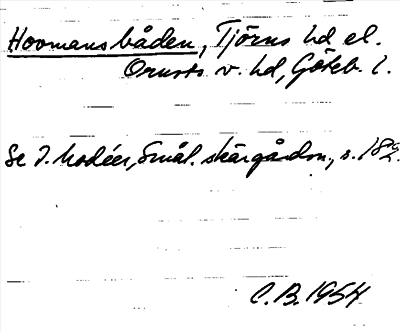 Hoomansbåden, Tjörns hd el.
Orusts v. hd, Göteb. l.
Se I. Modéer, Smål. skärgårdsn., s. 182.
C.B. 1954